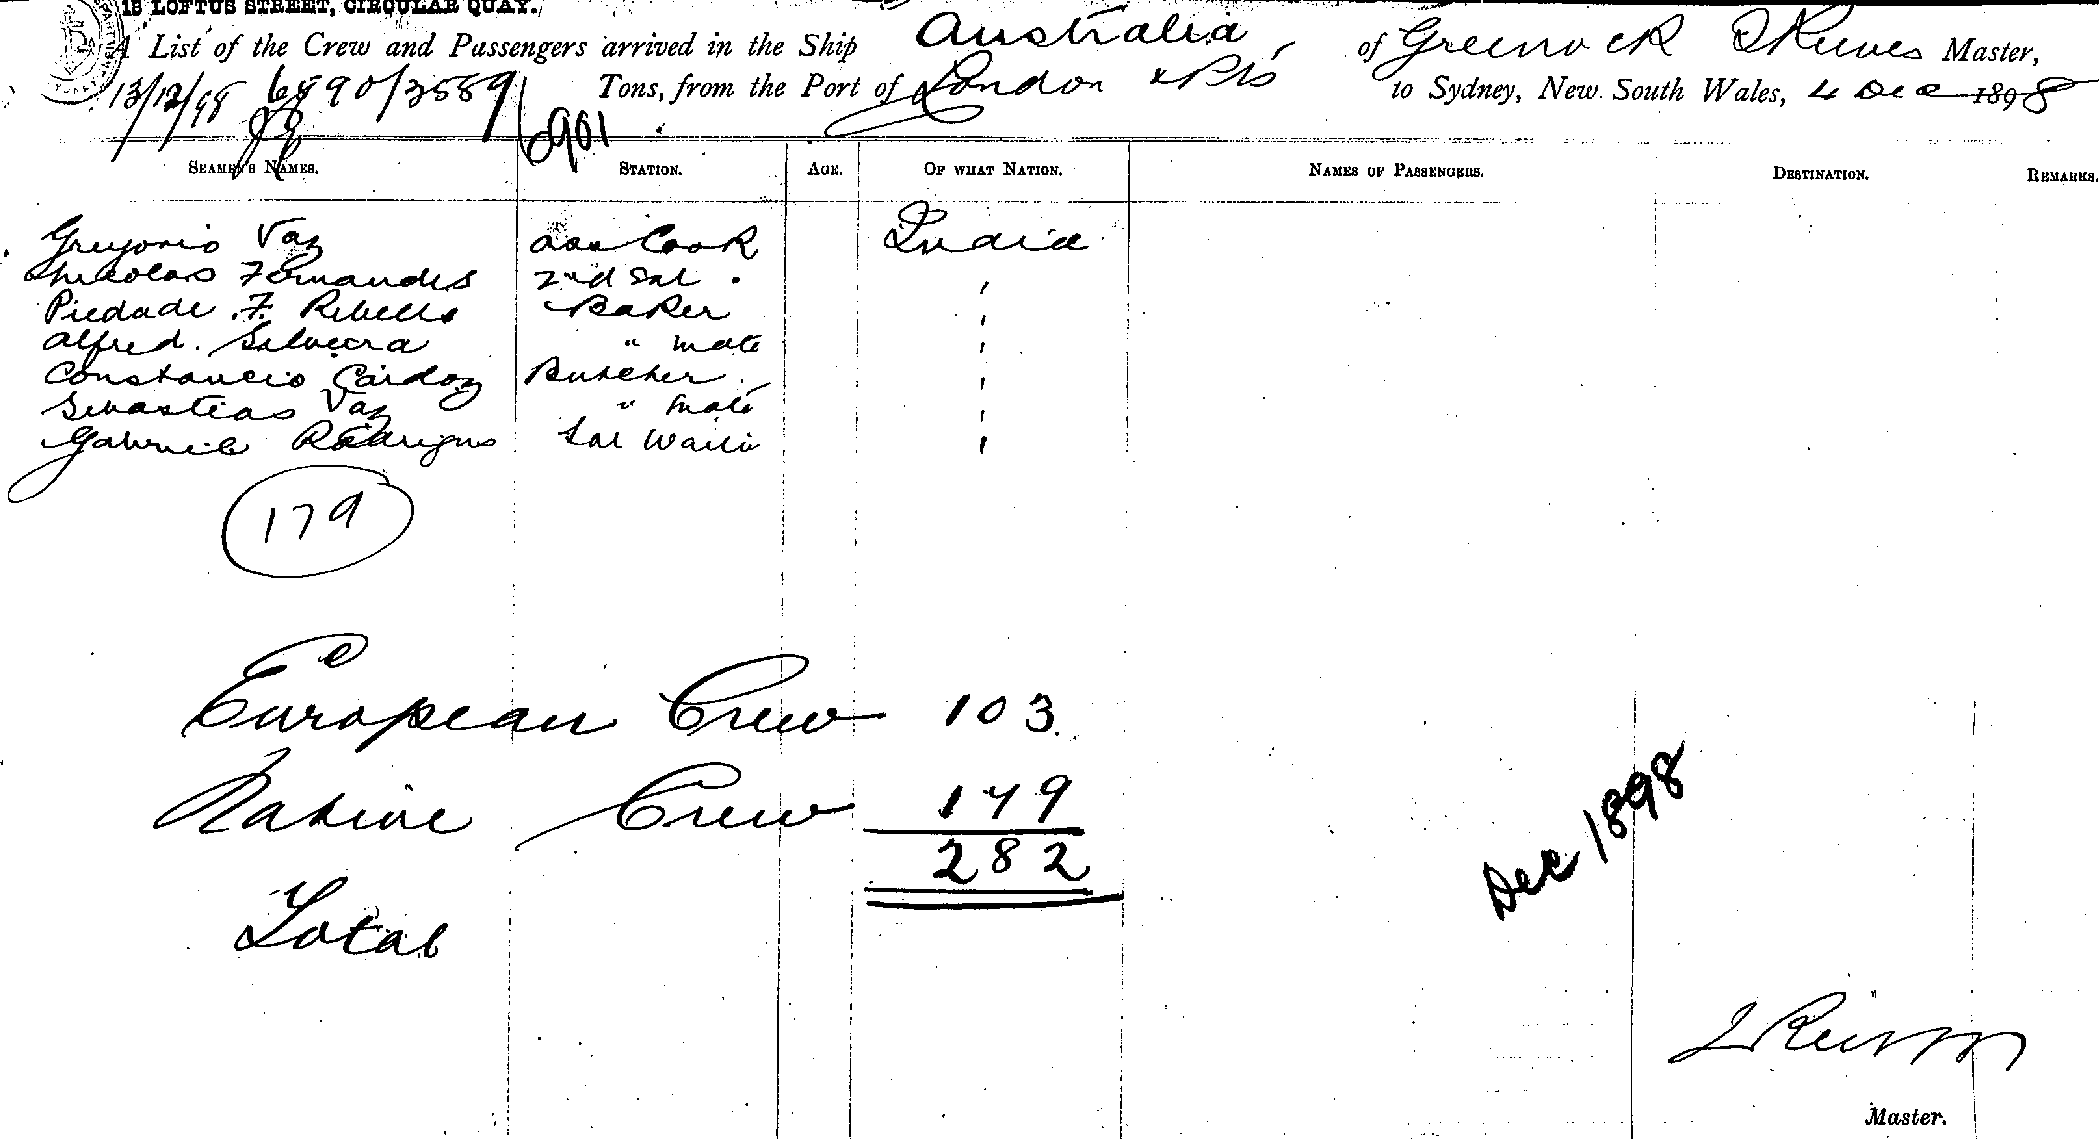 13 LOFTUS STREET, CIRCULAR QUAY.
A List of the Crew and Passengers arrived in the Ship Australia of Greenock Reeves Master,
13/12/98 6890/3589 Tons, from the Port of London & Pts to Sydney, New South Wales, 4 Dec 1898
6901
SEAMEN'S NAMES. STATION. AGE. OF WHAT NATION. NAMES OF PASSENGERS. DESTINATION. REMARKS.
Gregorio Vaz ass Cook India
Nicolas Fernandes 2nd Sal "
Piedade F. Rebello Baker "
Alfred Silveira " mate "
Constancio Cardoz Butcher "
Sebastiao Vaz " mate "
Gabriel Rodrigues Sal Waiter "
179
European Crew 103
Native Crew 179
282
Total
Dec 1898
Master.